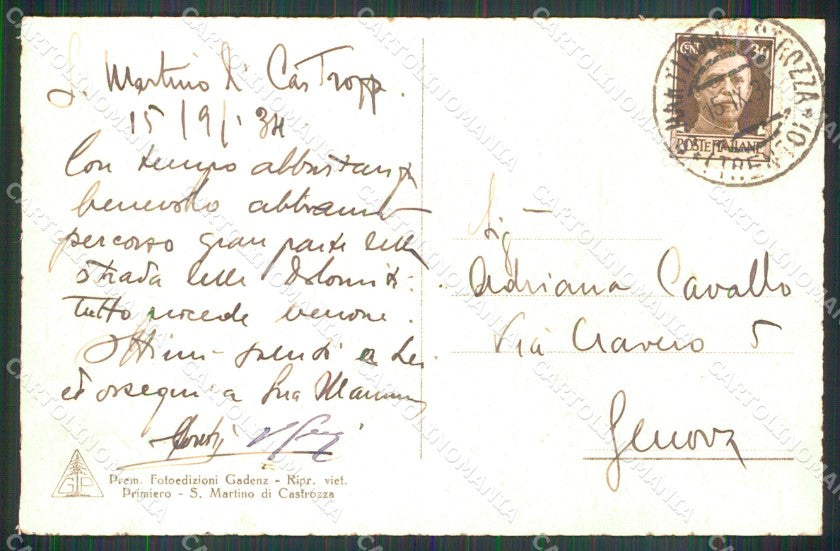 S. Martino di Castrozz.
15/9/'34
Con tempo abbastanza
benevolo abbiamo
percorso gran parte della
strada delle Dolomiti:
tutto procede benone.
Ottimi saluti a Lei
ed ossequi a Sua Mamma
Prem. Fotoedizioni Gadenz - Ripr. viet.
Primiero - S. Martino di Castrozza
CENT 30
POSTE ITALIANE
(TRENTO)
Sig
Adriana Cavallo
Via Cravero 5
Genova
CARTOLINOMANIA